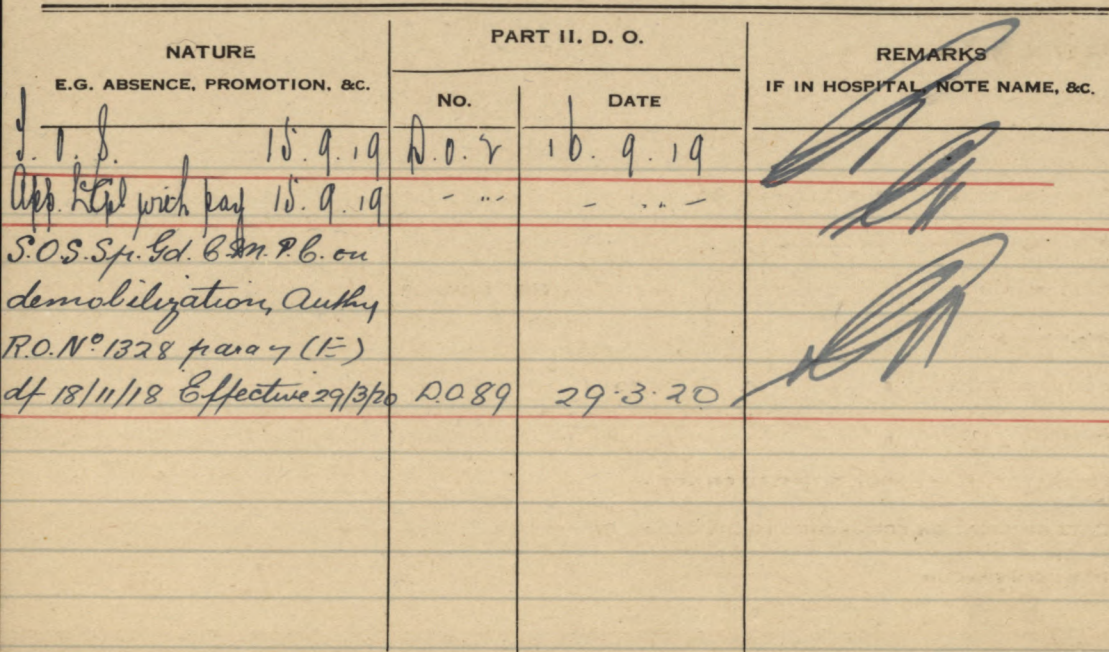 NATURE
E.G. ABSENCE, PROMOTION, &C.
PART II. D. O.
No. DATE
REMARKS
IF IN HOSPITAL, NOTE NAME, &C.
T. O. S. 15.9.19 D.O.2 16.9.19
App. L/Cpl with pay 15.9.19 - " - - " -
S.O.S. Sp. Gd. C.M.P.C. on
demobilization, Authy
R.O. No 1328 para 7 (E)
df 18/11/18 Effective 29/3/20 D.O.89 29.3.20